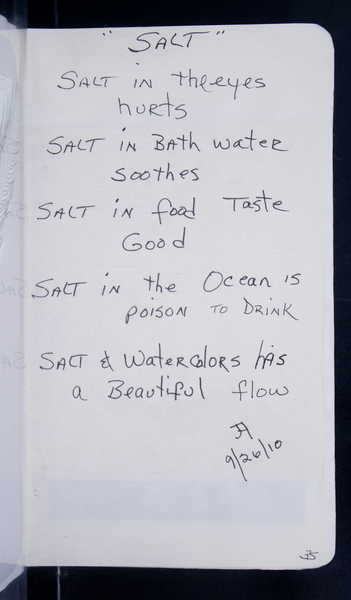 "SALT"
SALT in the eyes
hurts
SALT in BAth water
soothes
SALT in food Taste
Good
SALT in the Ocean is
poison TO DRINK
SALT & Watercolors has
a Beautiful flow
JA
9/26/10
35